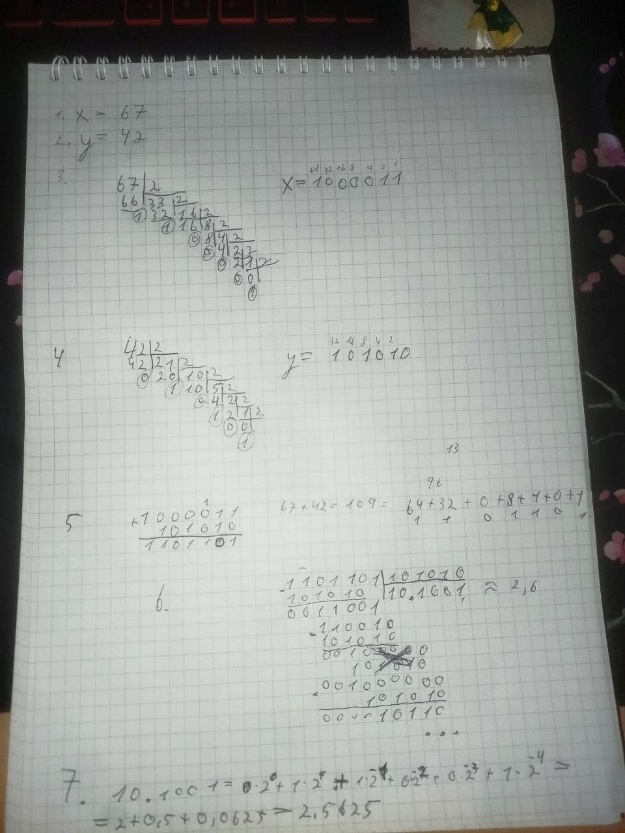 1. x = 67
2. y = 42
3
67 2
66 33 2
1 32 16 2
1 16 8 2
0 8 4 2
0 4 2 2
0 2 1 2
0 0
1
64 32 16 8 4 2 1
x = 1000011
4
42 2
42 21 2
0 20 10 2
1 10 5 2
0 4 2 2
1 2 1 2
0 0
1
32 16 8 4 2
y = 101010
13
96
5
1
+1000011
101010
1101101
67+42=109= 64+32+0+8+4+0+1
1 1 0 1 1 0 1
6.
1101101 101010
-101010 10.1001 ≈ 2,6
0011001
110010
-101010
00100000
101010
001000000
-101010
000010110
...
7. 10.1001 = 0·2^0 + 1·2^1 + 1·2^-1 + 0·2^-2 + 0·2^-3 + 1·2^-4 =
= 2+0,5+0,0625 = 2,5625